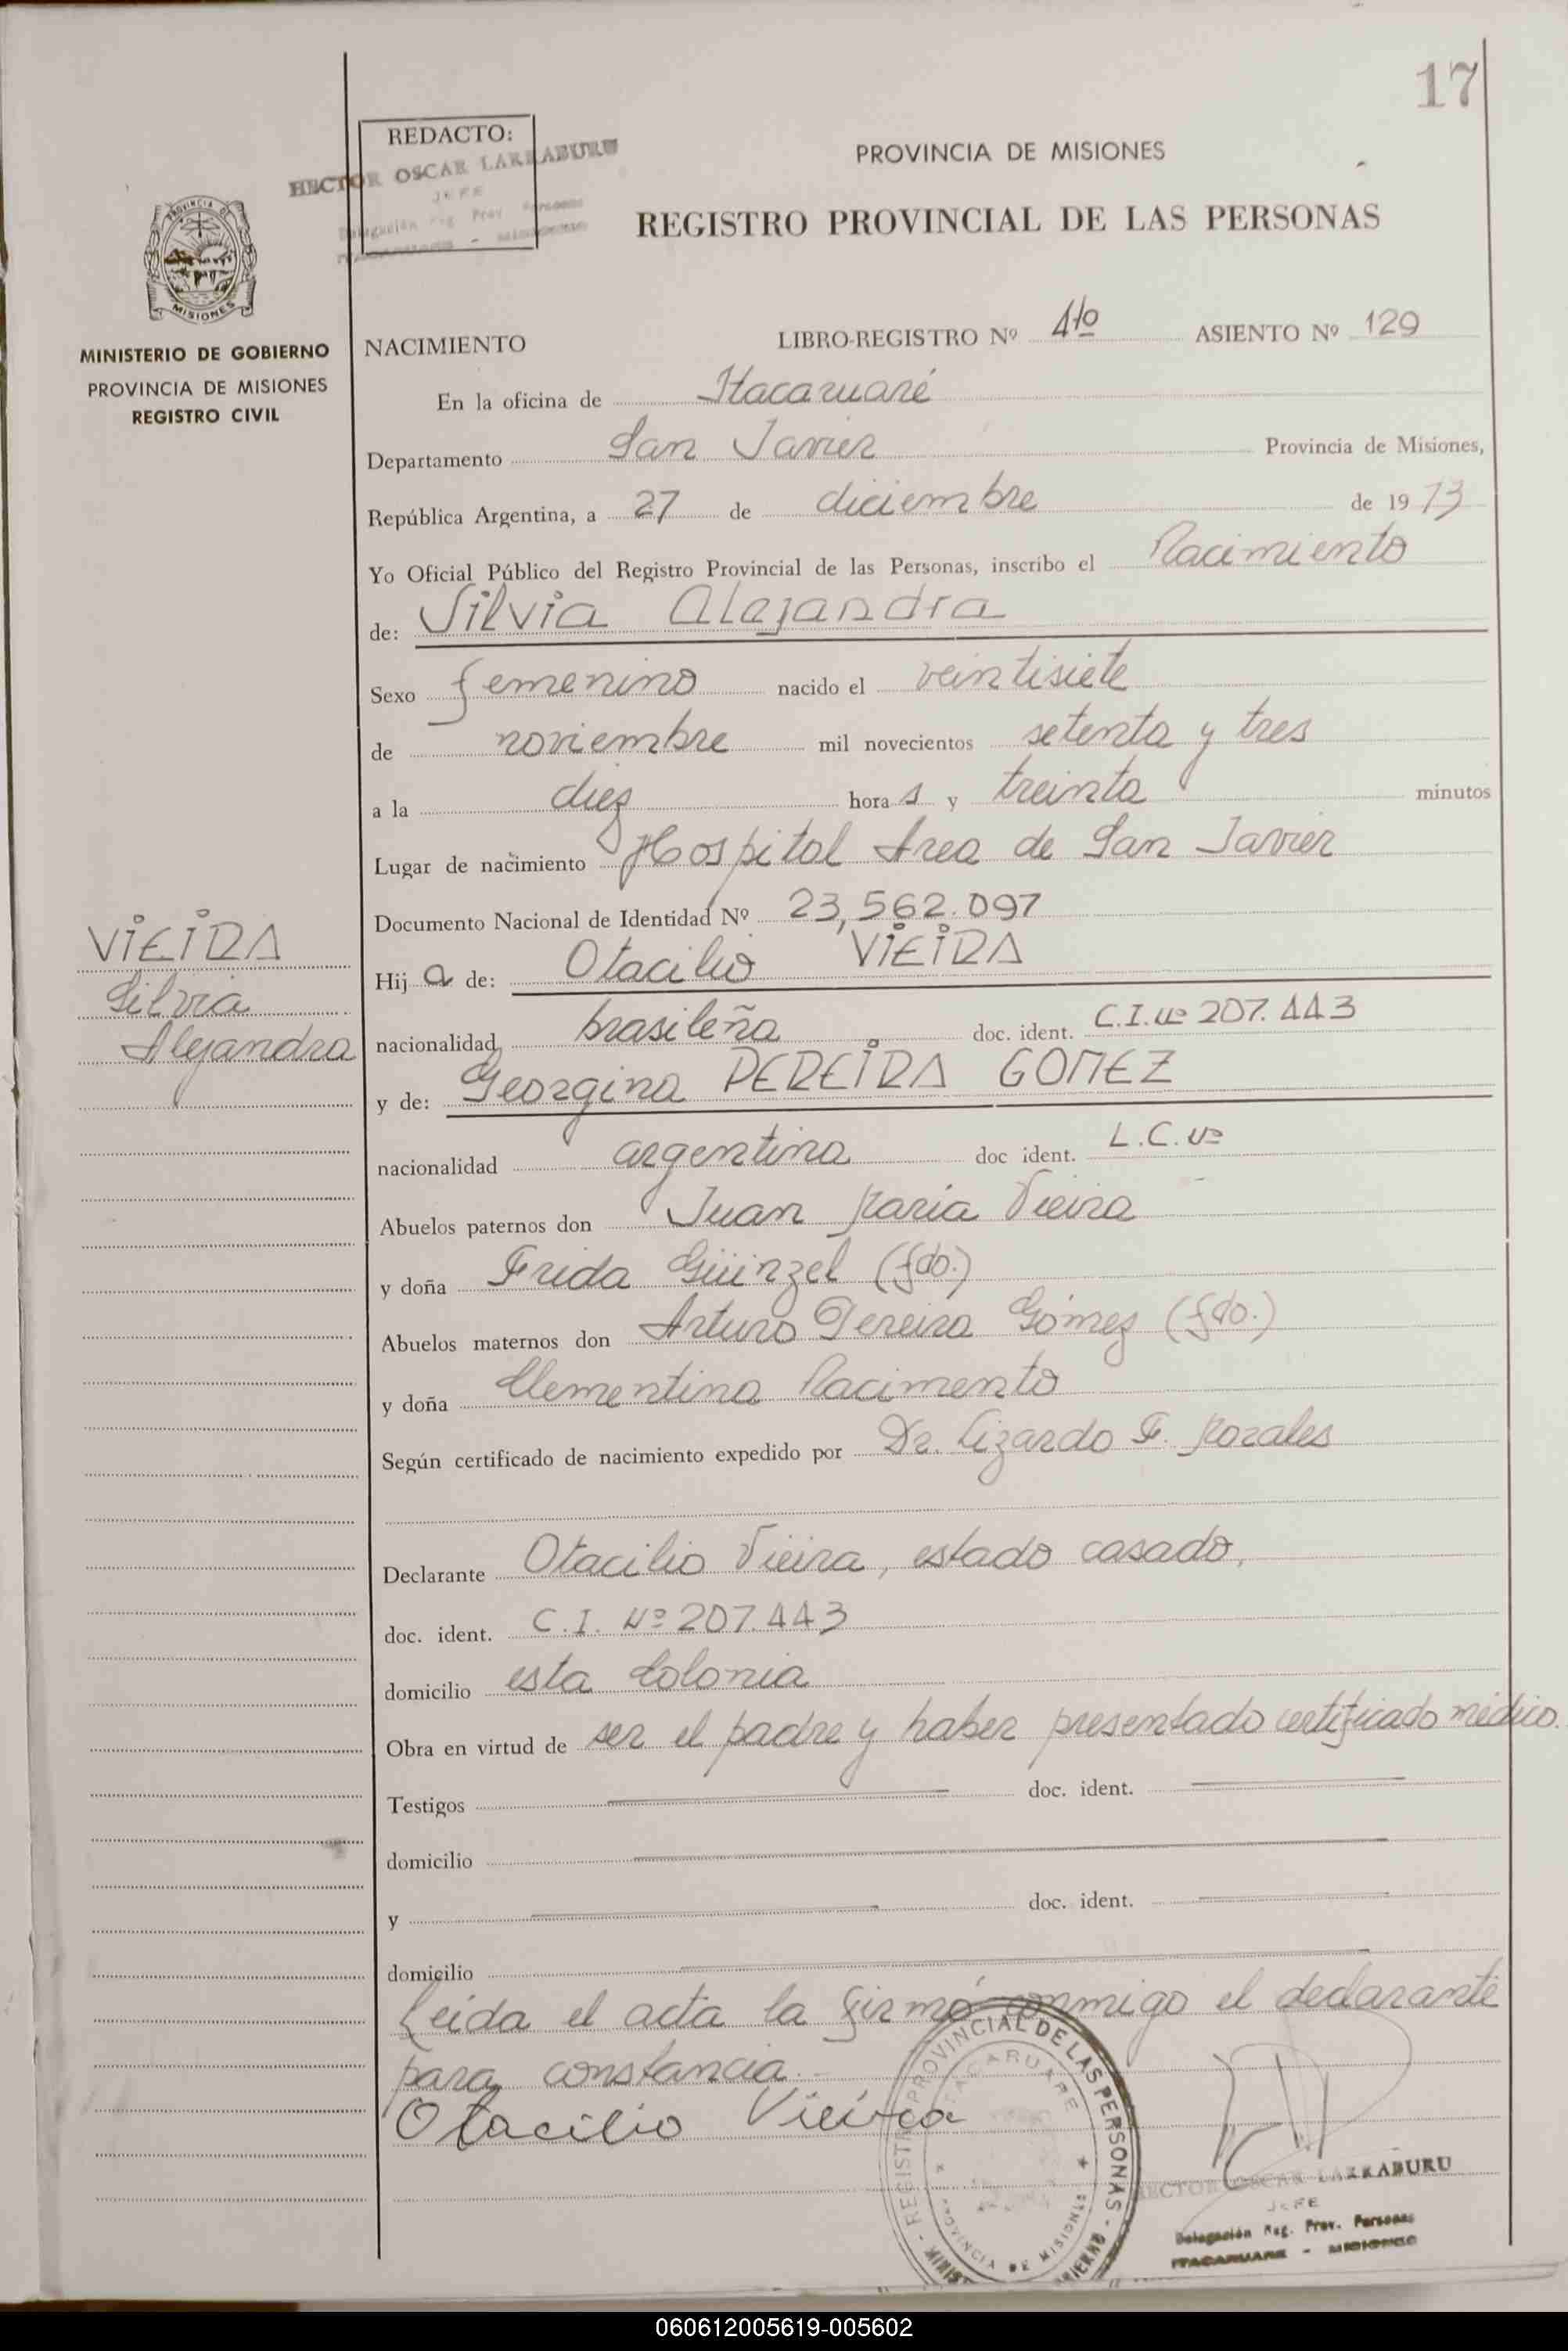 17
REDACTO:
HECTOR OSCAR LARRABURU
JEFE
Delegación Reg. Prov. Personas
PROVINCIA DE MISIONES
REGISTRO PROVINCIAL DE LAS PERSONAS
PROVINCIA DE
MISIONES
MINISTERIO DE GOBIERNO
PROVINCIA DE MISIONES
REGISTRO CIVIL
NACIMIENTO LIBRO-REGISTRO Nº 4to ASIENTO Nº 129
En la oficina de Itacaruaré
Departamento San Javier Provincia de Misiones,
República Argentina, a 27 de diciembre de 1973
Yo Oficial Público del Registro Provincial de las Personas, inscribo el Nacimiento
de: Silvia Alejandra
Sexo femenino nacido el veintisiete
de noviembre mil novecientos setenta y tres
a la diez hora s y treinta minutos
Lugar de nacimiento Hospital Area de San Javier
Documento Nacional de Identidad Nº 23,562.097
VIEIRA
Silvia
Alejandra
Hij a de: Otacilio VIEIRA
nacionalidad brasileña doc. ident. C.I. Nº 207.443
y de: Georgina PEREIRA GOMEZ
nacionalidad argentina doc ident. L.C. Nº
Abuelos paternos don Juan María Vieira
y doña Frida Güinzel (fdo.)
Abuelos maternos don Arturo Pereira Gómez (fdo.)
y doña Clementina Nacimento
Según certificado de nacimiento expedido por Dr. Lizardo F. Morales
Declarante Otacilio Vieira, estado casado,
doc. ident. C.I. Nº 207.443
domicilio esta Colonia
Obra en virtud de ser el padre y haber presentado certificado médico.
Testigos doc. ident.
domicilio
y doc. ident.
domicilio
Leída el acta la firmó conmigo el declarante
para constancia.-
Otacilio Vieira
REGISTRO PROVINCIAL DE LAS PERSONAS
ITACARUARE
PROVINCIA DE MISIONES
HECTOR OSCAR LARRABURU
JEFE
Delegación Reg. Prov. Personas
ITACARUARE - MISIONES
060612005619-005602